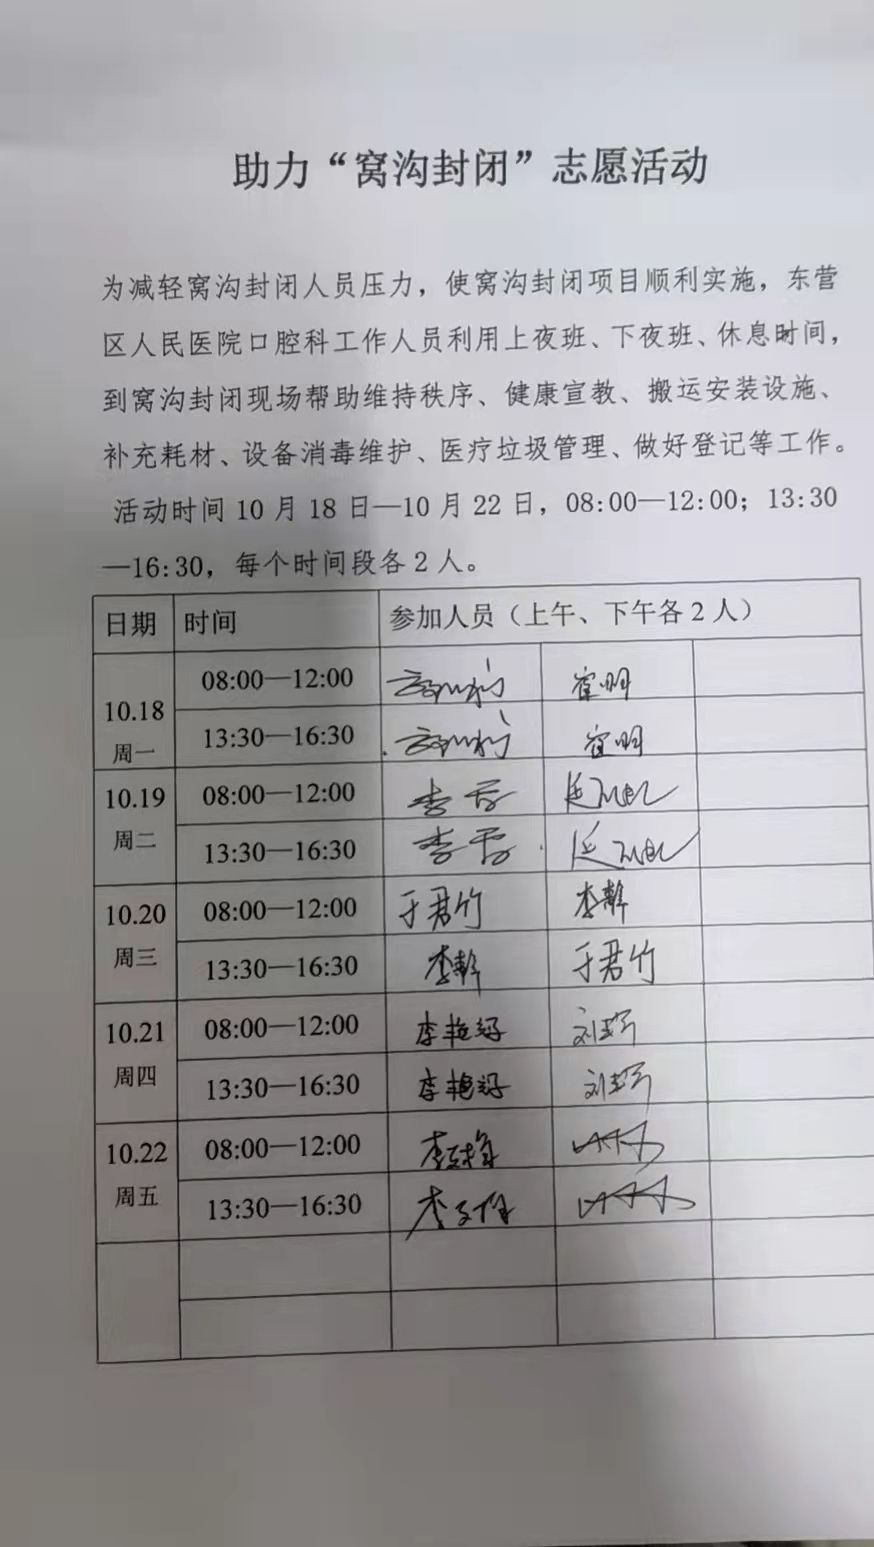 助力“窝沟封闭”志愿活动
为减轻窝沟封闭人员压力，使窝沟封闭项目顺利实施，东营
区人民医院口腔科工作人员利用上夜班、下夜班、休息时间，
到窝沟封闭现场帮助维持秩序、健康宣教、搬运安装设施、
补充耗材、设备消毒维护、医疗垃圾管理、做好登记等工作。
活动时间 10 月 18 日—10 月 22 日，08:00—12:00；13:30
—16:30，每个时间段各 2 人。
日期 时间 参加人员（上午、下午各 2 人）
10.18 周一 08:00—12:00
13:30—16:30
10.19 周二 08:00—12:00 李
13:30—16:30 李
10.20 周三 08:00—12:00 于君竹
13:30—16:30 于君竹
10.21 周四 08:00—12:00 李艳
13:30—16:30 李艳
10.22 周五 08:00—12:00 李
13:30—16:30 李